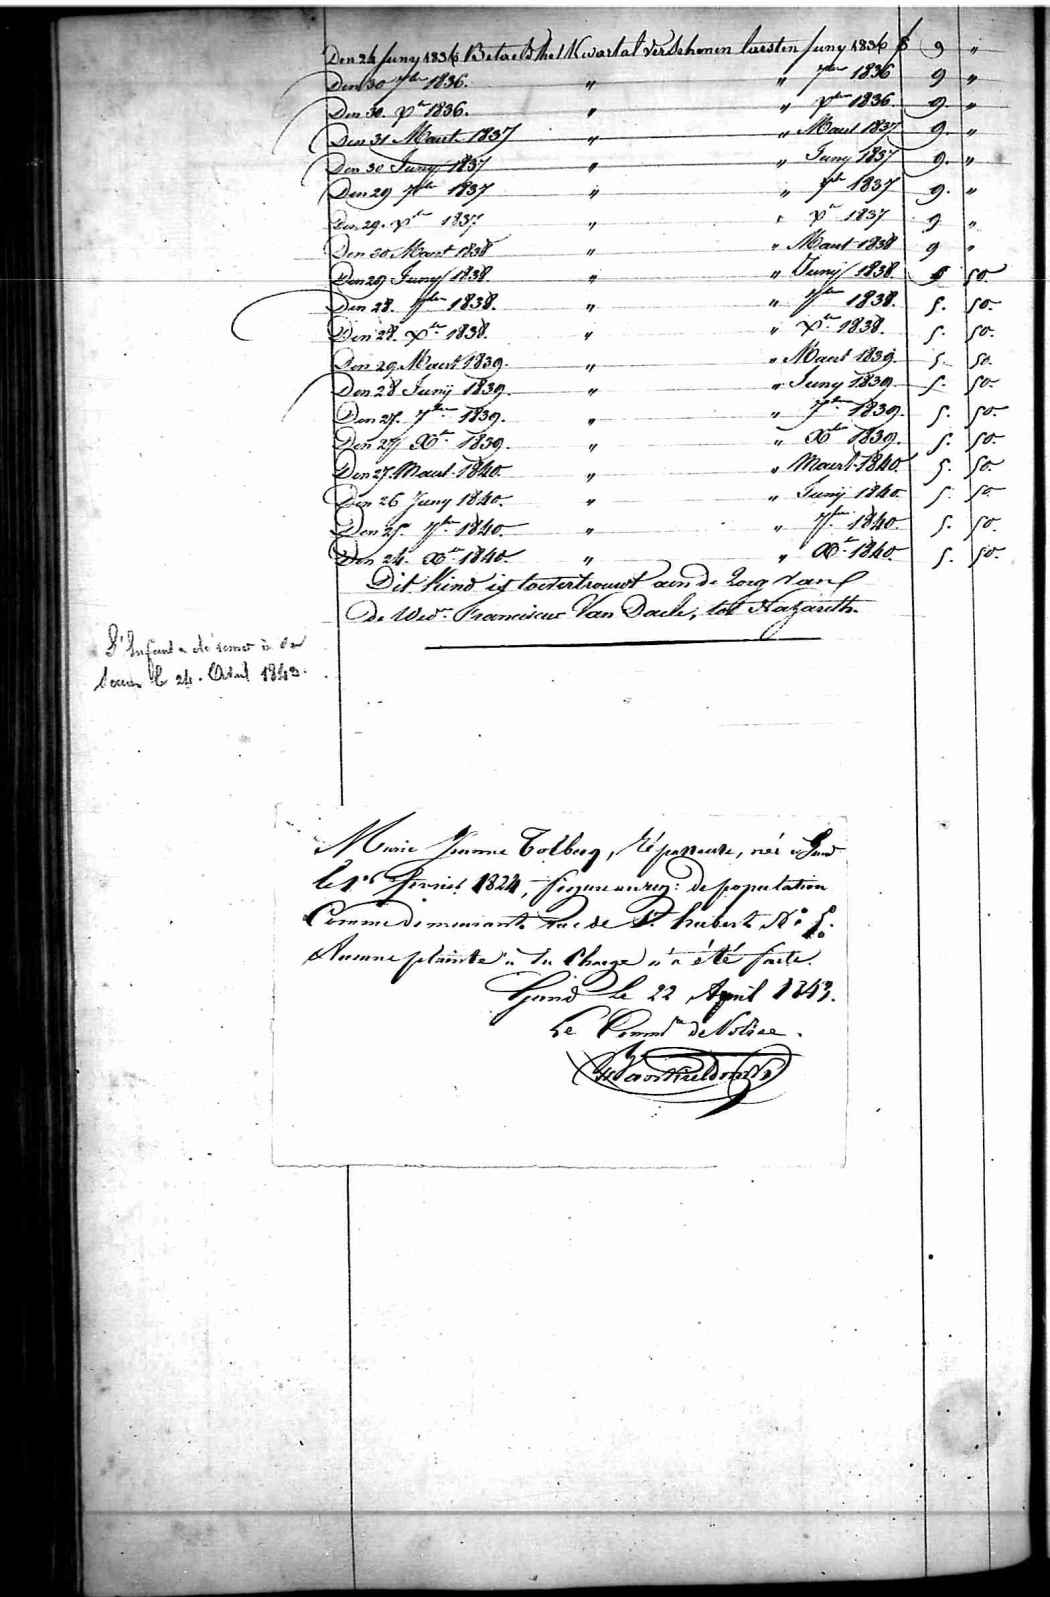 Den 24 Juny 1836 Betaeld het Kwartal verschenen laesten Juny 1836 f 9 "
Den 30 7ber 1836. " " 7ber 1836 9 "
Den 30. Xbr 1836. " " Xber 1836. 9. "
Den 31 Maart 1837 " " Maart 1837 9. "
Den 30 Juny 1837 " " Juny 1837 9. "
Den 29 7ber 1837 " " 7ber 1837 9. "
Den 29. Xbr 1837 " " Xbr 1837 9 "
Den 30 Maart 1838 " " Maart 1838 9 "
Den 29 Juny 1838. " " Junij 1838. 5 50.
Den 28. 7ber 1838. " " 7ber 1838. 5. 50.
Den 28. Xber 1838. " " Xber 1838. 5. 50.
Den 29 Maert 1839. " " Maert 1839. 5. 50.
Den 28 Junij 1839. " " Juny 1839. 5. 50.
Den 27. 7ber 1839. " " 7ber 1839. 5. 50.
Den 27 Xber 1839. " " Xber 1839. 5. 50.
Den 27. Maert 1840. " " Maert 1840. 5. 50.
Den 26 Juny 1840. " " Junij 1840. 5. 50.
Den 25. 7ber 1840. " " 7ber 1840. 5. 50.
Den 24. Xbr 1840. " " Xbr 1840. 5. 50.
Dit Kind is toevertrouwt aen de Zorg van
de Wed. Franciscus Van Daele, tot Nazareth.
L'Enfant a été remis à sa
Soeur le 24. Avril 1843.
Marie Jeanne Tolberg, née à Gand
le 1er Fevrier 1824, figure au reg: de population
Comme demeurant rue de St. hubert No 5.
Aucune plainte à sa Charge n'a été faite.
Gand le 22 April 1843.
Le Commre de Police.